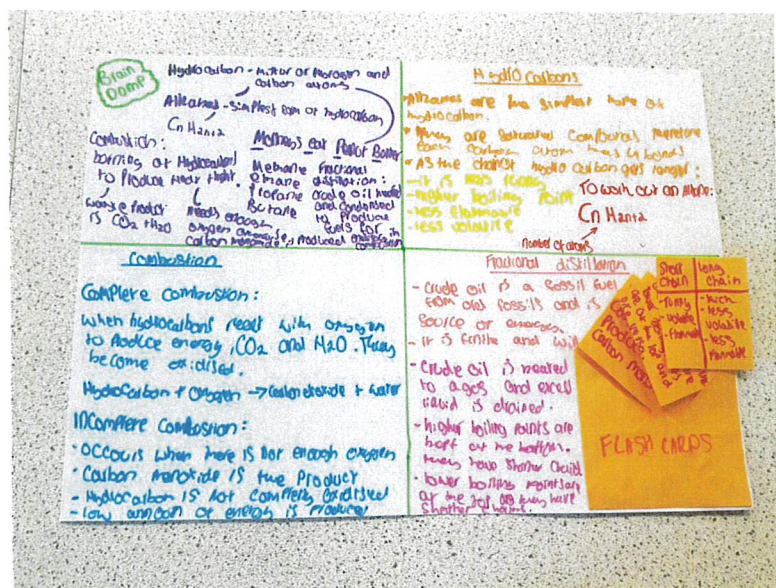 Brain
Domp
Hydrocarbon - Mixtur of Hydrogen and
carbon atoms
Alkanes - simplest form of hydrocarbon
Cn H2n+2
Mothers eat Peanut Butter
Combustion:
burning of Hydrocarbons
to Produce Heat + light.
waste Product
is CO2 + H2O
needs enough
oxygen
carbon monoxide
Methane
ethane
Propane
Butane
Fractional
distillation:
crude oil heated
and condensed
to produce
fuels for
Hydrocarbons
Alkanes are the simplest type of
hydrocarbon.
They are saturated
each carbon atom has 4 bonds
As the chain of hydrocarbon gets longer:
- it is less runny
- higher boiling Point
- less flammable
- less volatile
To work out an alkane:
Cn H2n+2
number of atoms
Combustion
Complete combustion:
When hydrocarbons react with oxygen
to Produce energy, CO2 and H2O. They
become oxidised.
Hydrocarbon + Oxygen → Carbon dioxide + water
Incomplete combustion:
- Occurs when there is not enough oxygen
- Carbon monoxide is the Product
- Hydrocarbon is not completly oxidised
- low amount of energy is Produced
Fractional distillation
- crude oil is a fossil fuel
From old fossils and is
source of energy
- it is finite and
- crude oil is heated
to a gas and excess
liquid is drained.
- higher boiling Points are
kept at the bottom.
they have shorter chains
- lower boiling points are
at the top as they have
shorter chains.
Short
chain
long
chain
- runny
- volatile
- flammable
- thick
- less
volatile
- less
flammable
Carbon
FLASH CARDS